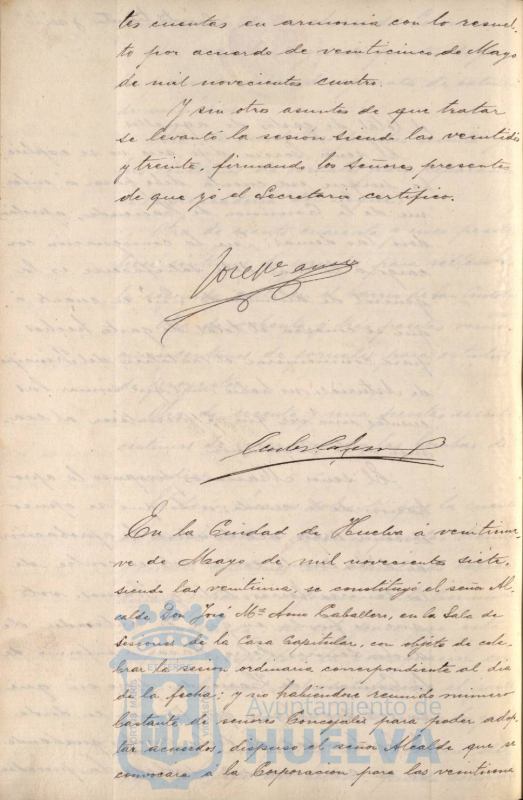 tes cuentas en armonía con lo resuel-
to por acuerdo de veinticinco de Mayo
de mil novecientos cuatro.
Y sin otros asuntos de que tratar
se levantó la sesión siendo las veintidós
y treinta, firmando los señores presentes
de que yó el Secretario certifico.
José Mª
En la Ciudad de Huelva á veintinue-
ve de Mayo de mil novecientos siete,
siendo las veintiuna, se constituyó el señor Al-
calde Don José Mª Amo Caballero, en la Sala de
Sesiones de la Casa Capitular, con objeto de cele-
brar la sesión ordinaria correspondiente al día
de la fecha; y no habiéndose reunido número
bastante de señores Concejales para poder adop-
tar acuerdos, dispuso el señor Alcalde que se
convocara á la Corporación para las veintiuna
Ayuntamiento de
HUELVA